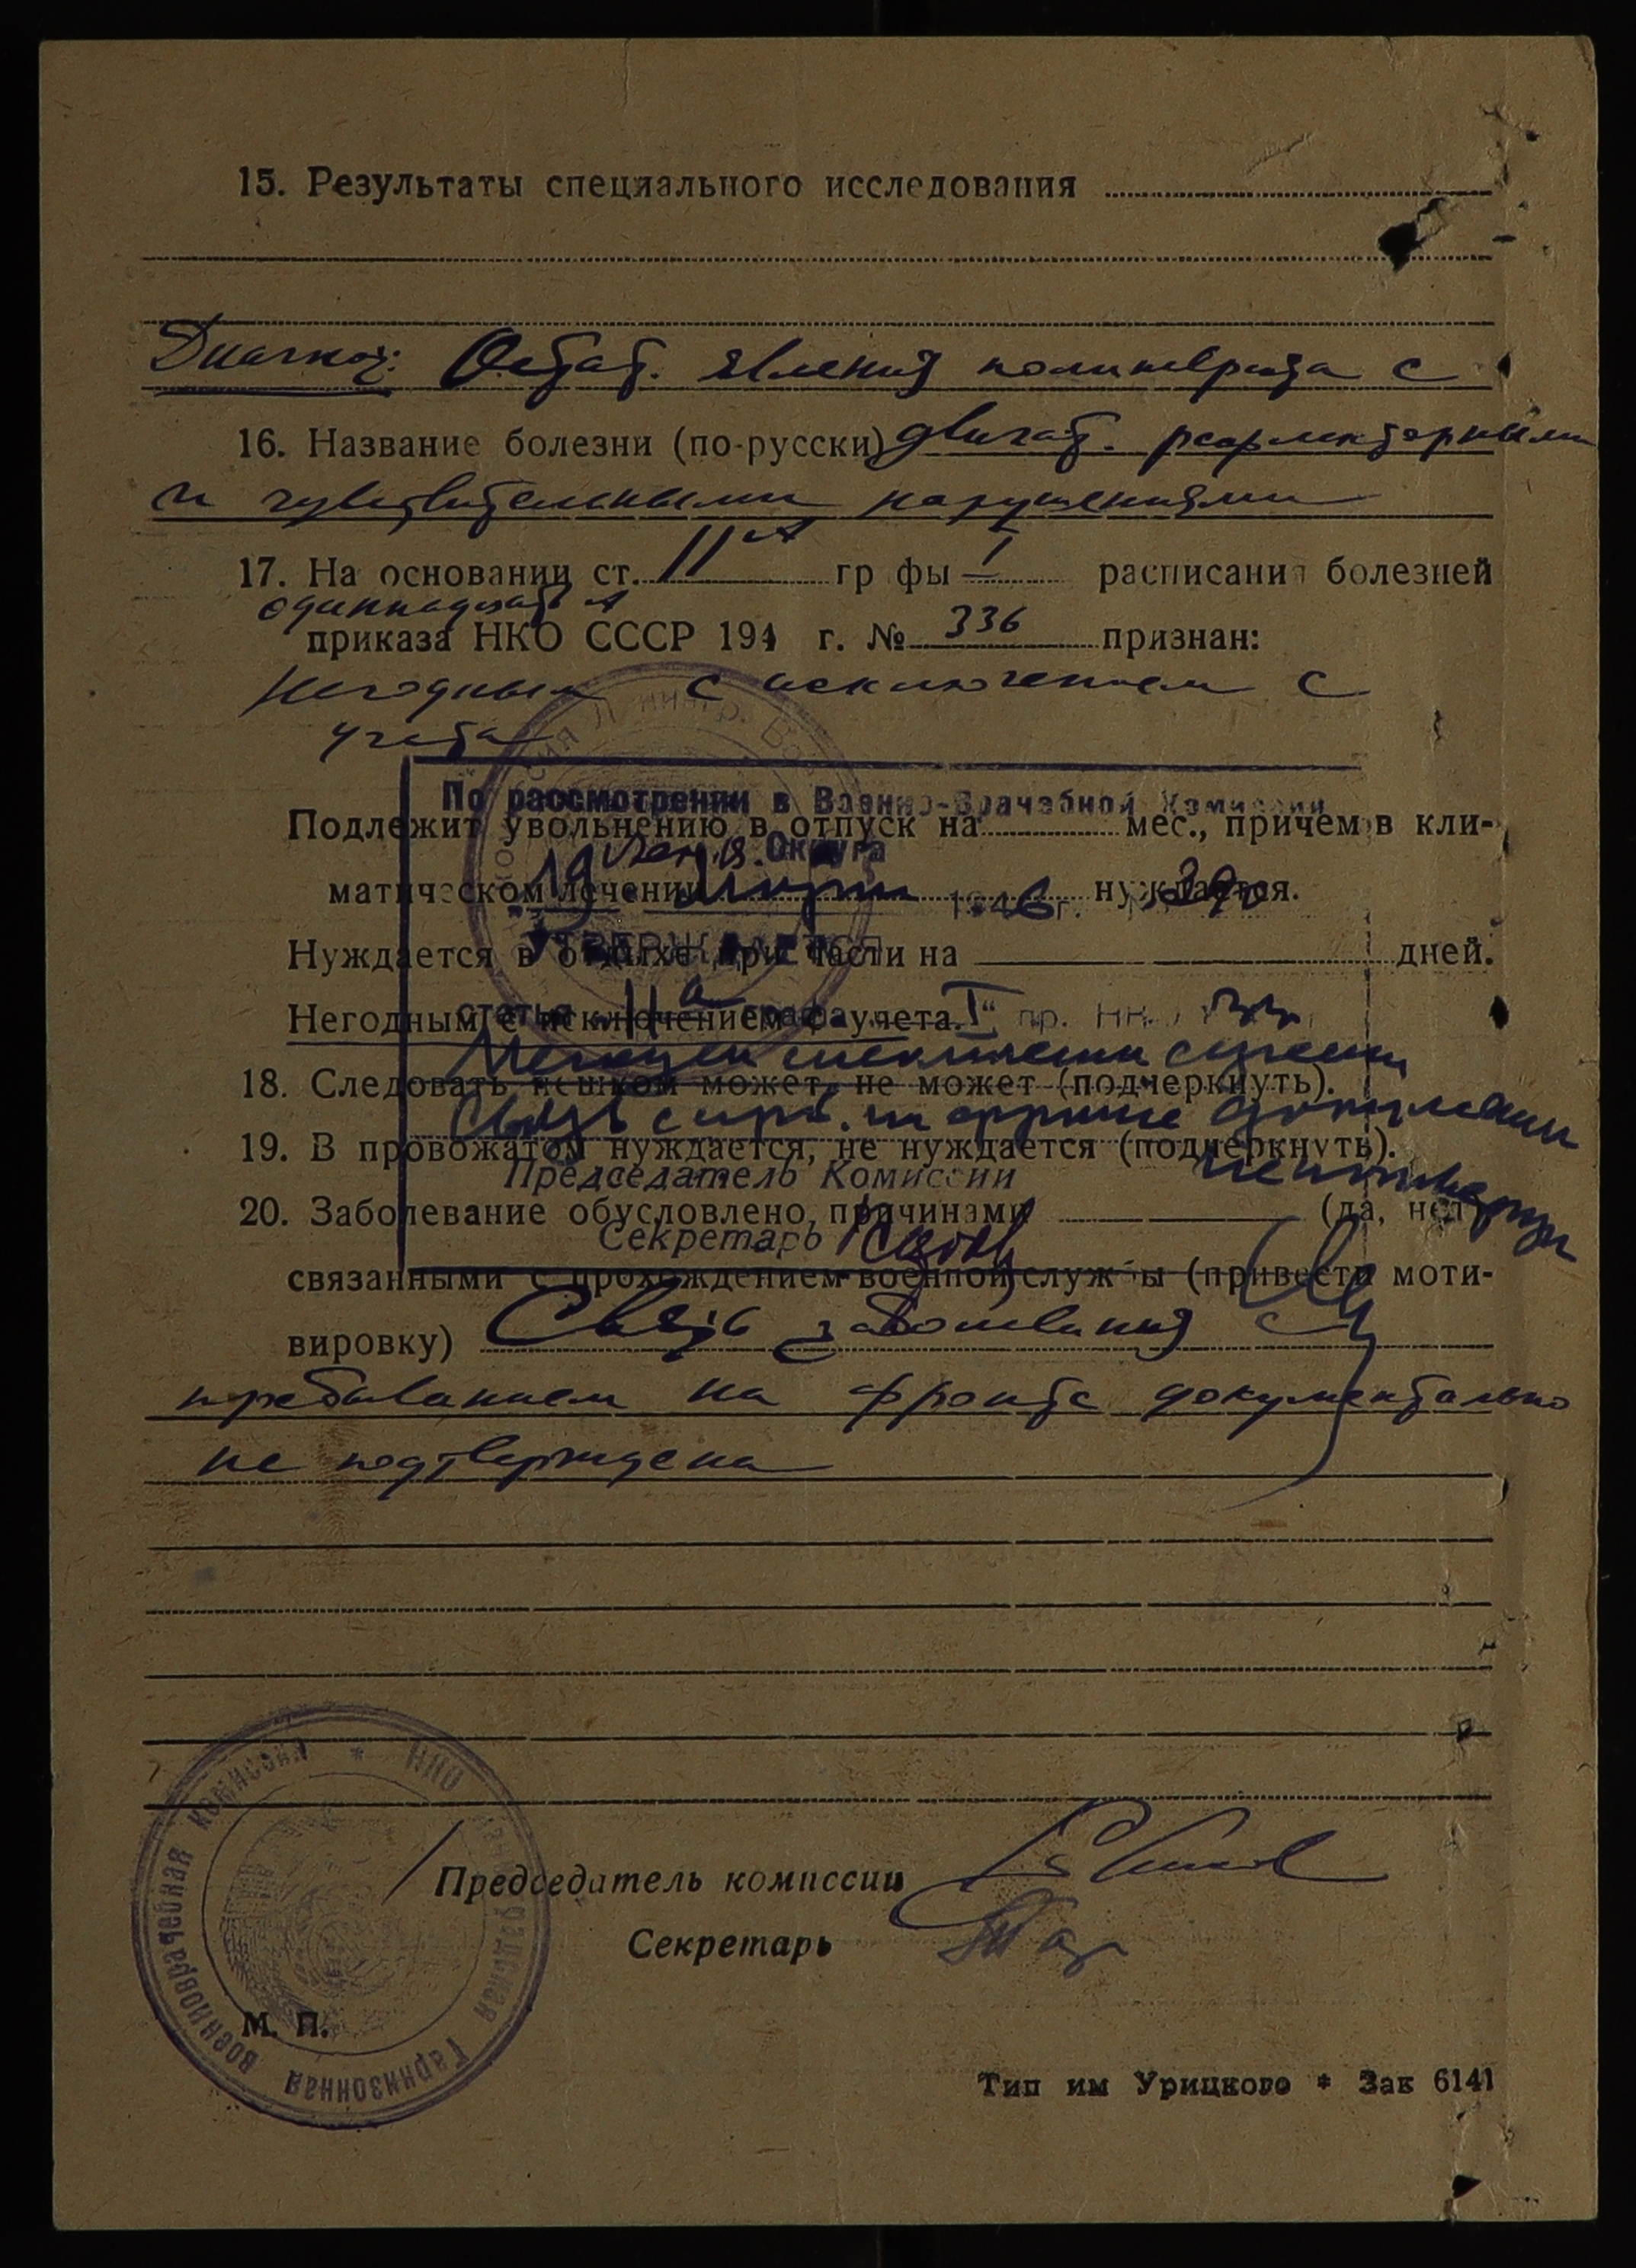 15. Результаты специального исследования
Диагноз: Остат. явления полиневрита с
16. Название болезни (по-русски) двигат. рефлекторными
и чувствительными нарушениями
17. На основании ст. 11 А графы I расписания болезней
одиннадцать А
приказа НКО СССР 194 г. № 336 признан:
Негодным с исключением с
учета
По рассмотрении в Военно-Врачебной Комиссии
Подлежит увольнению в отпуск на мес., причем в кли-
Округа
матическом лечении нуждается.
19 марта 1946 г.
УТВЕРЖДАЕТСЯ
Нуждается в отдыхе при части на дней.
статья 11 а графа I пр. НКО 336
Негодным с исключением с учета.
18. Следовать пешком может, не может (подчеркнуть).
Связь с преб. на фронте документально
19. В провожатом нуждается, не нуждается (подчеркнуть).
не подтвержд.
Председатель Комиссии
20. Заболевание обусловлено, причинами (да, нет)
Секретарь
связанными с прохождением военной службы (привести моти-
вировку) Связь заболевания с
пребыванием на фронте документально
не подтверждена
НКО Ленинградская Гарнизонная военноврачебная комиссия
Председатель комиссии
Секретарь
М. П.
Тип им Урицкого * Зак 6141